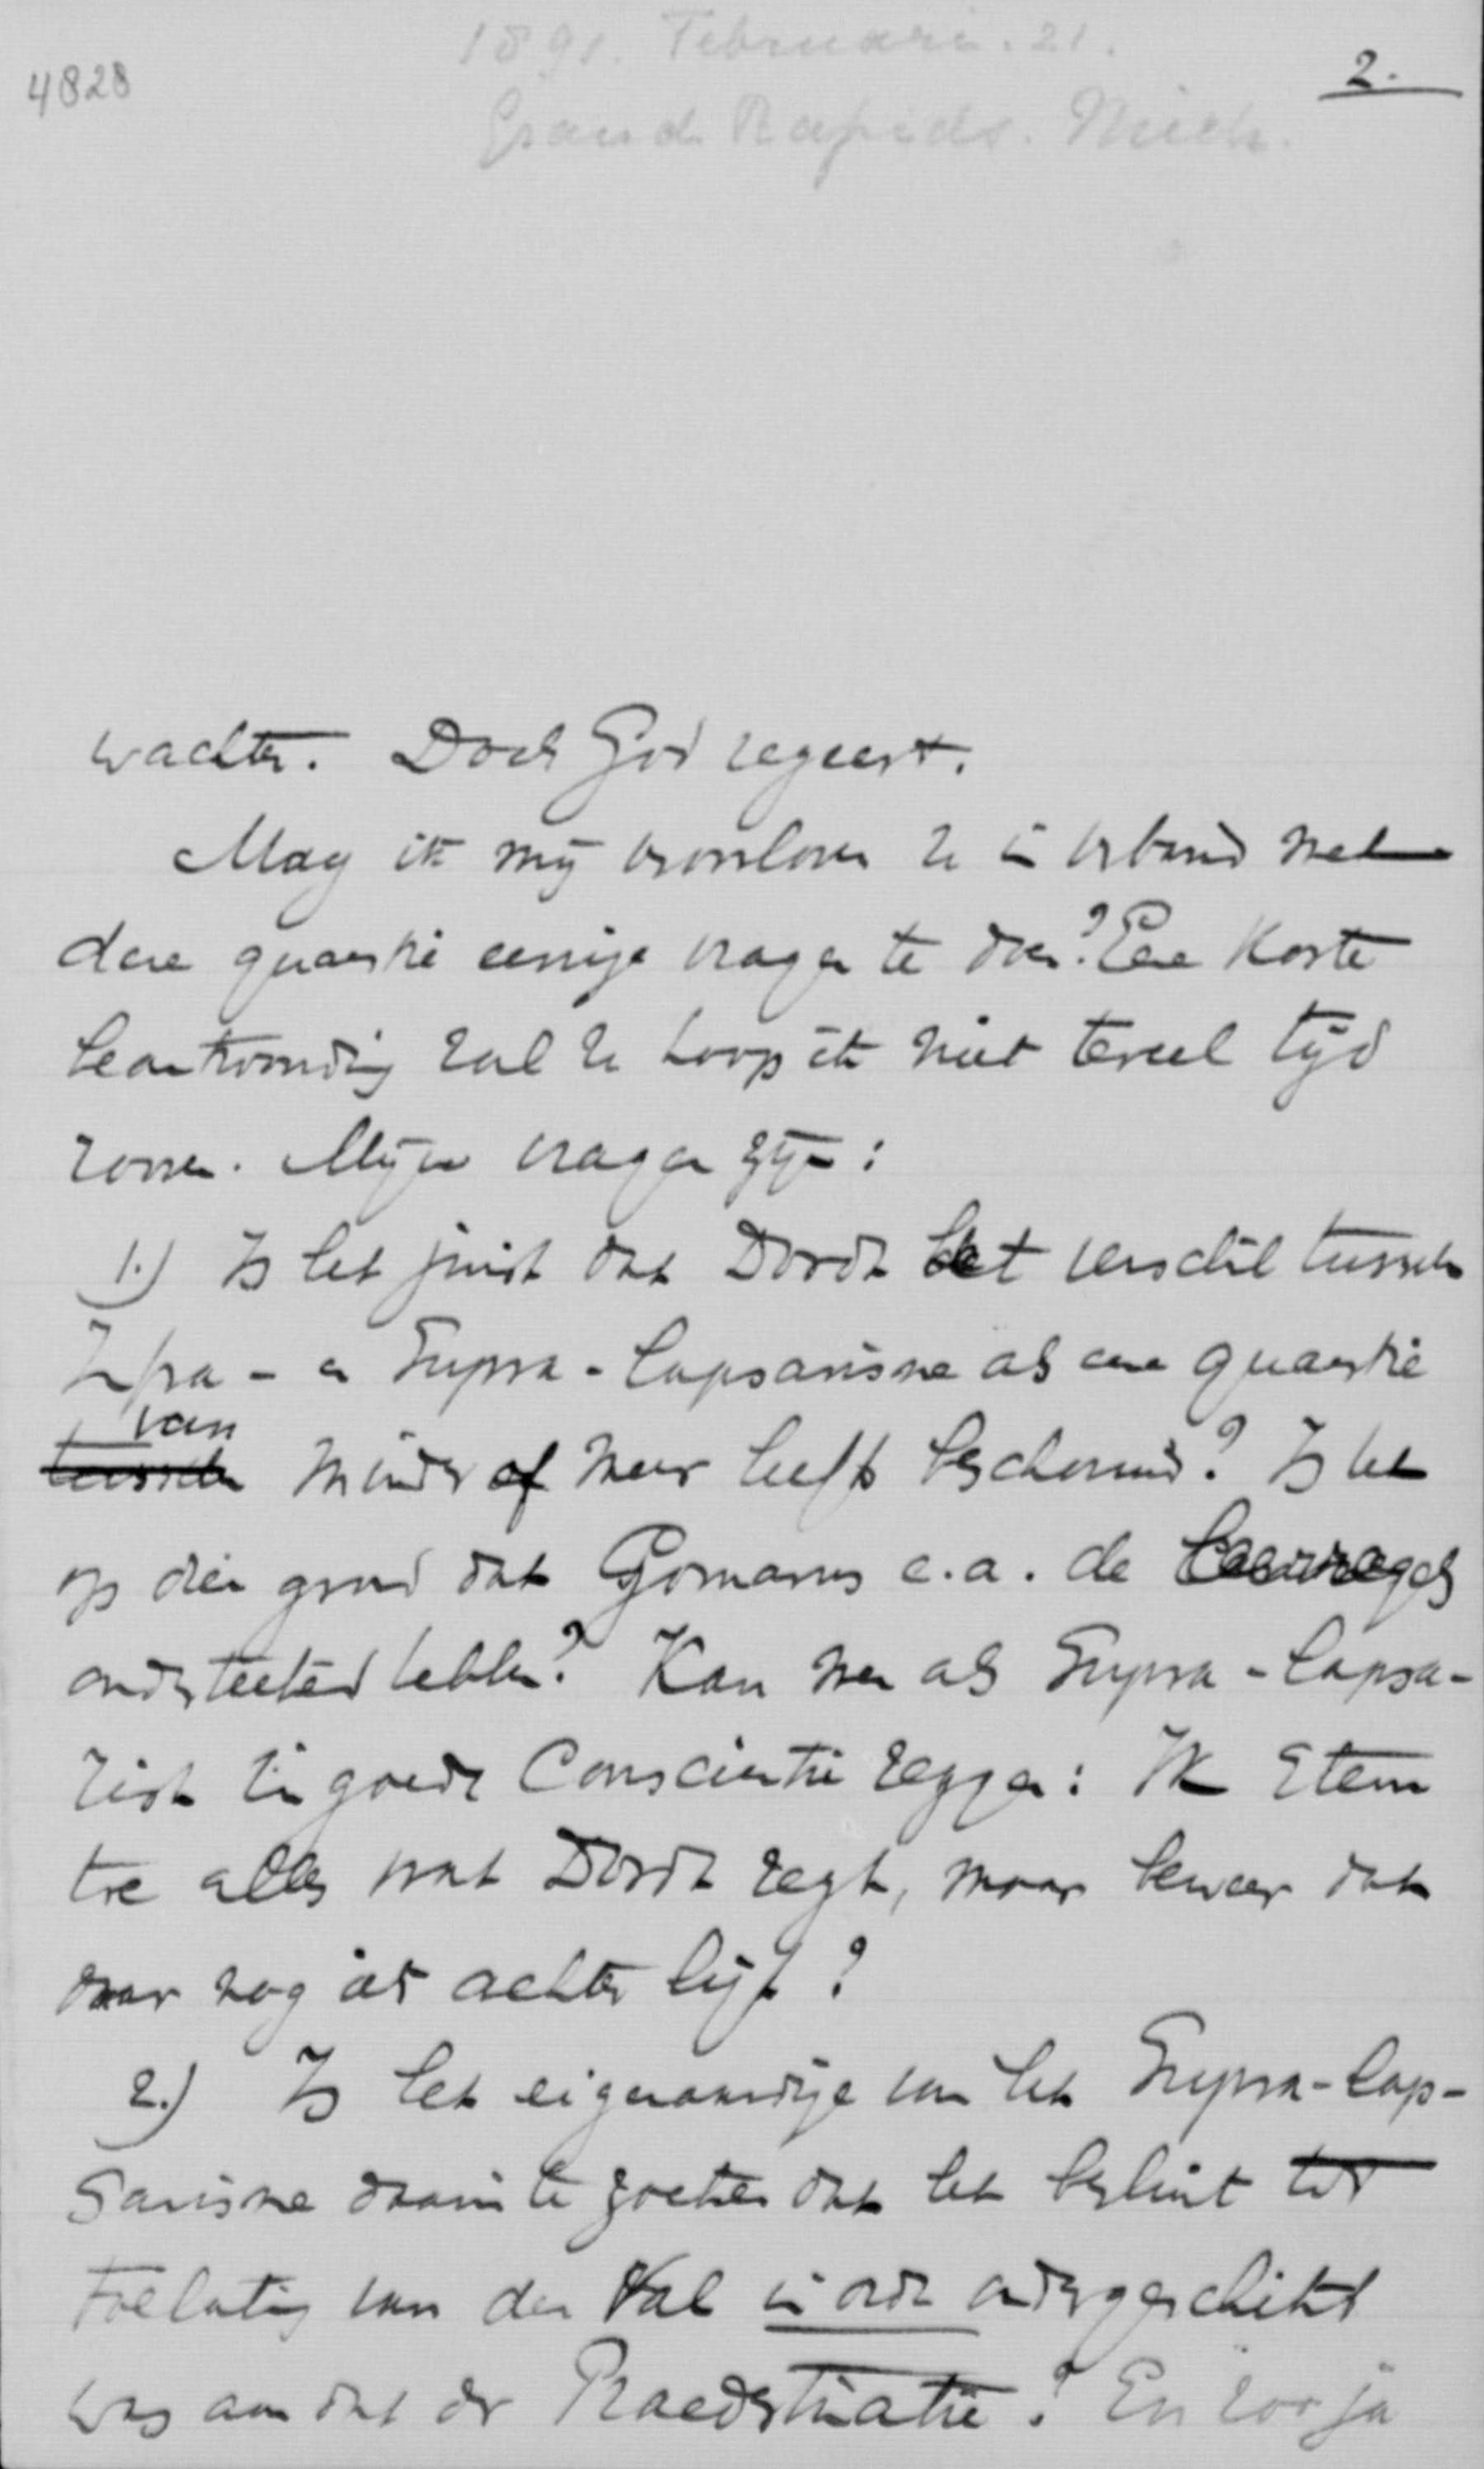 1891. Februari. 21.
4828
2.
Grand Rapids. Mich.
wachten. Doch God regeert.
Mag ik mij veroorloven U in verband met
deze quaestie eenige vragen te doen? Eene korte
beantwoording zal U hoop ik niet teveel tijd
rooven. Mijne vragen zijn:
1.) Is het juist dat Dordt het verschil tusschen
Infra- en Supra-lapsarisme als eene quaestie
van
tusschen minder of meer heeft beschouwd? Is het
op dien grond dat Gomarus e.a. de Leerregels
onderteekend hebben? Kan men als Supra-lapsa-
rist in goede Conscientie zeggen: Ik stem
toe alles wat Dordt zegt, maar beweer dat
daar nog iets achter ligt?
2.) Is het eigenaardige van het Supra-lap-
sarisme daarin te zoeken dat het besluit tot
toelating van den Val in orde ondergeschikt
was aan dat der Praedestinatie? En zoo ja